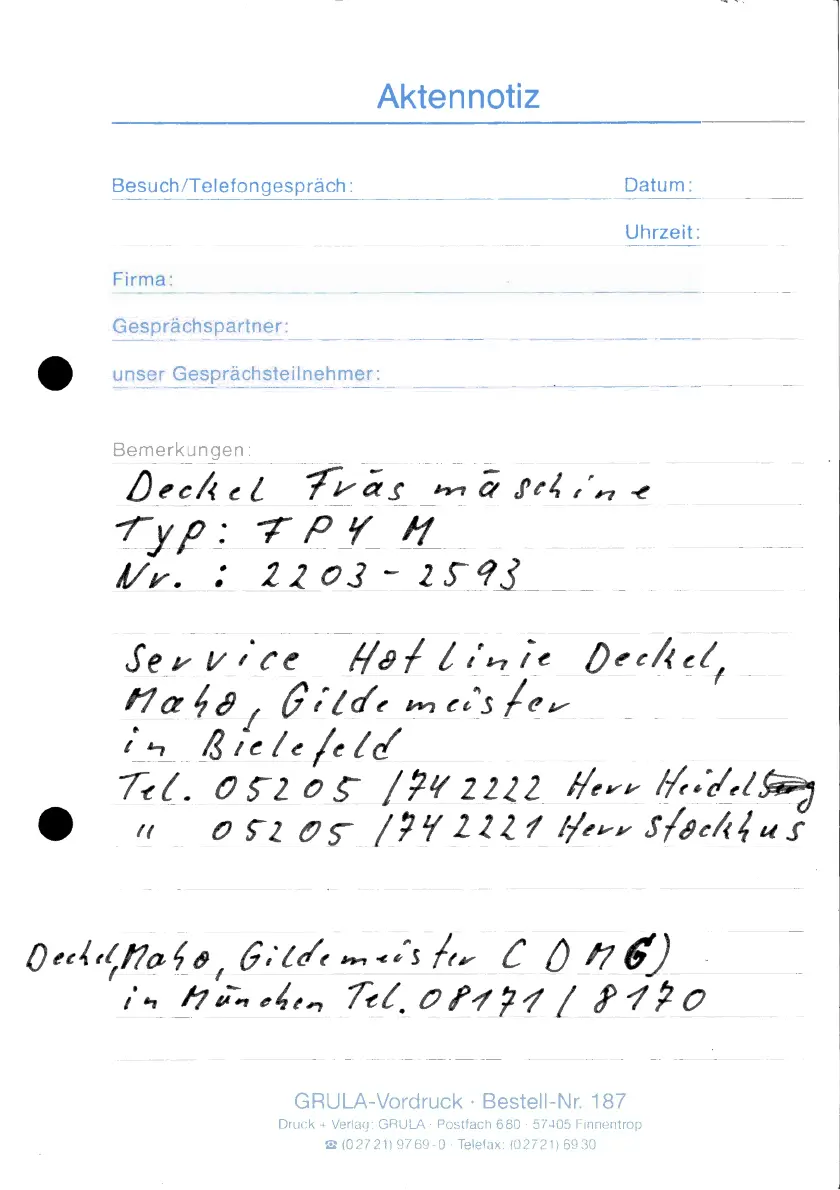 Aktennotiz
Besuch/Telefongespräch: Datum:
Uhrzeit:
Firma:
Gesprächspartner:
unser Gesprächsteilnehmer:
Bemerkungen:
Deckel Fräsmaschine
Typ: FP4 M
Nr. : 2203-2593
Service Hotlinie Deckel,
Maho, Gildemeister
in Bielefeld
Tel. 05205 /742222 Herr
" 05205 /742221 Herr Stockhus
Deckel, Maho, Gildemeister ( DMG)
in München Tel. 08171 / 8170
GRULA-Vordruck · Bestell-Nr. 187
Druck + Verlag: GRULA · Postfach 680 · 57405 Finnentrop
☎ (02721) 9769-0 · Telefax: (02721) 6930